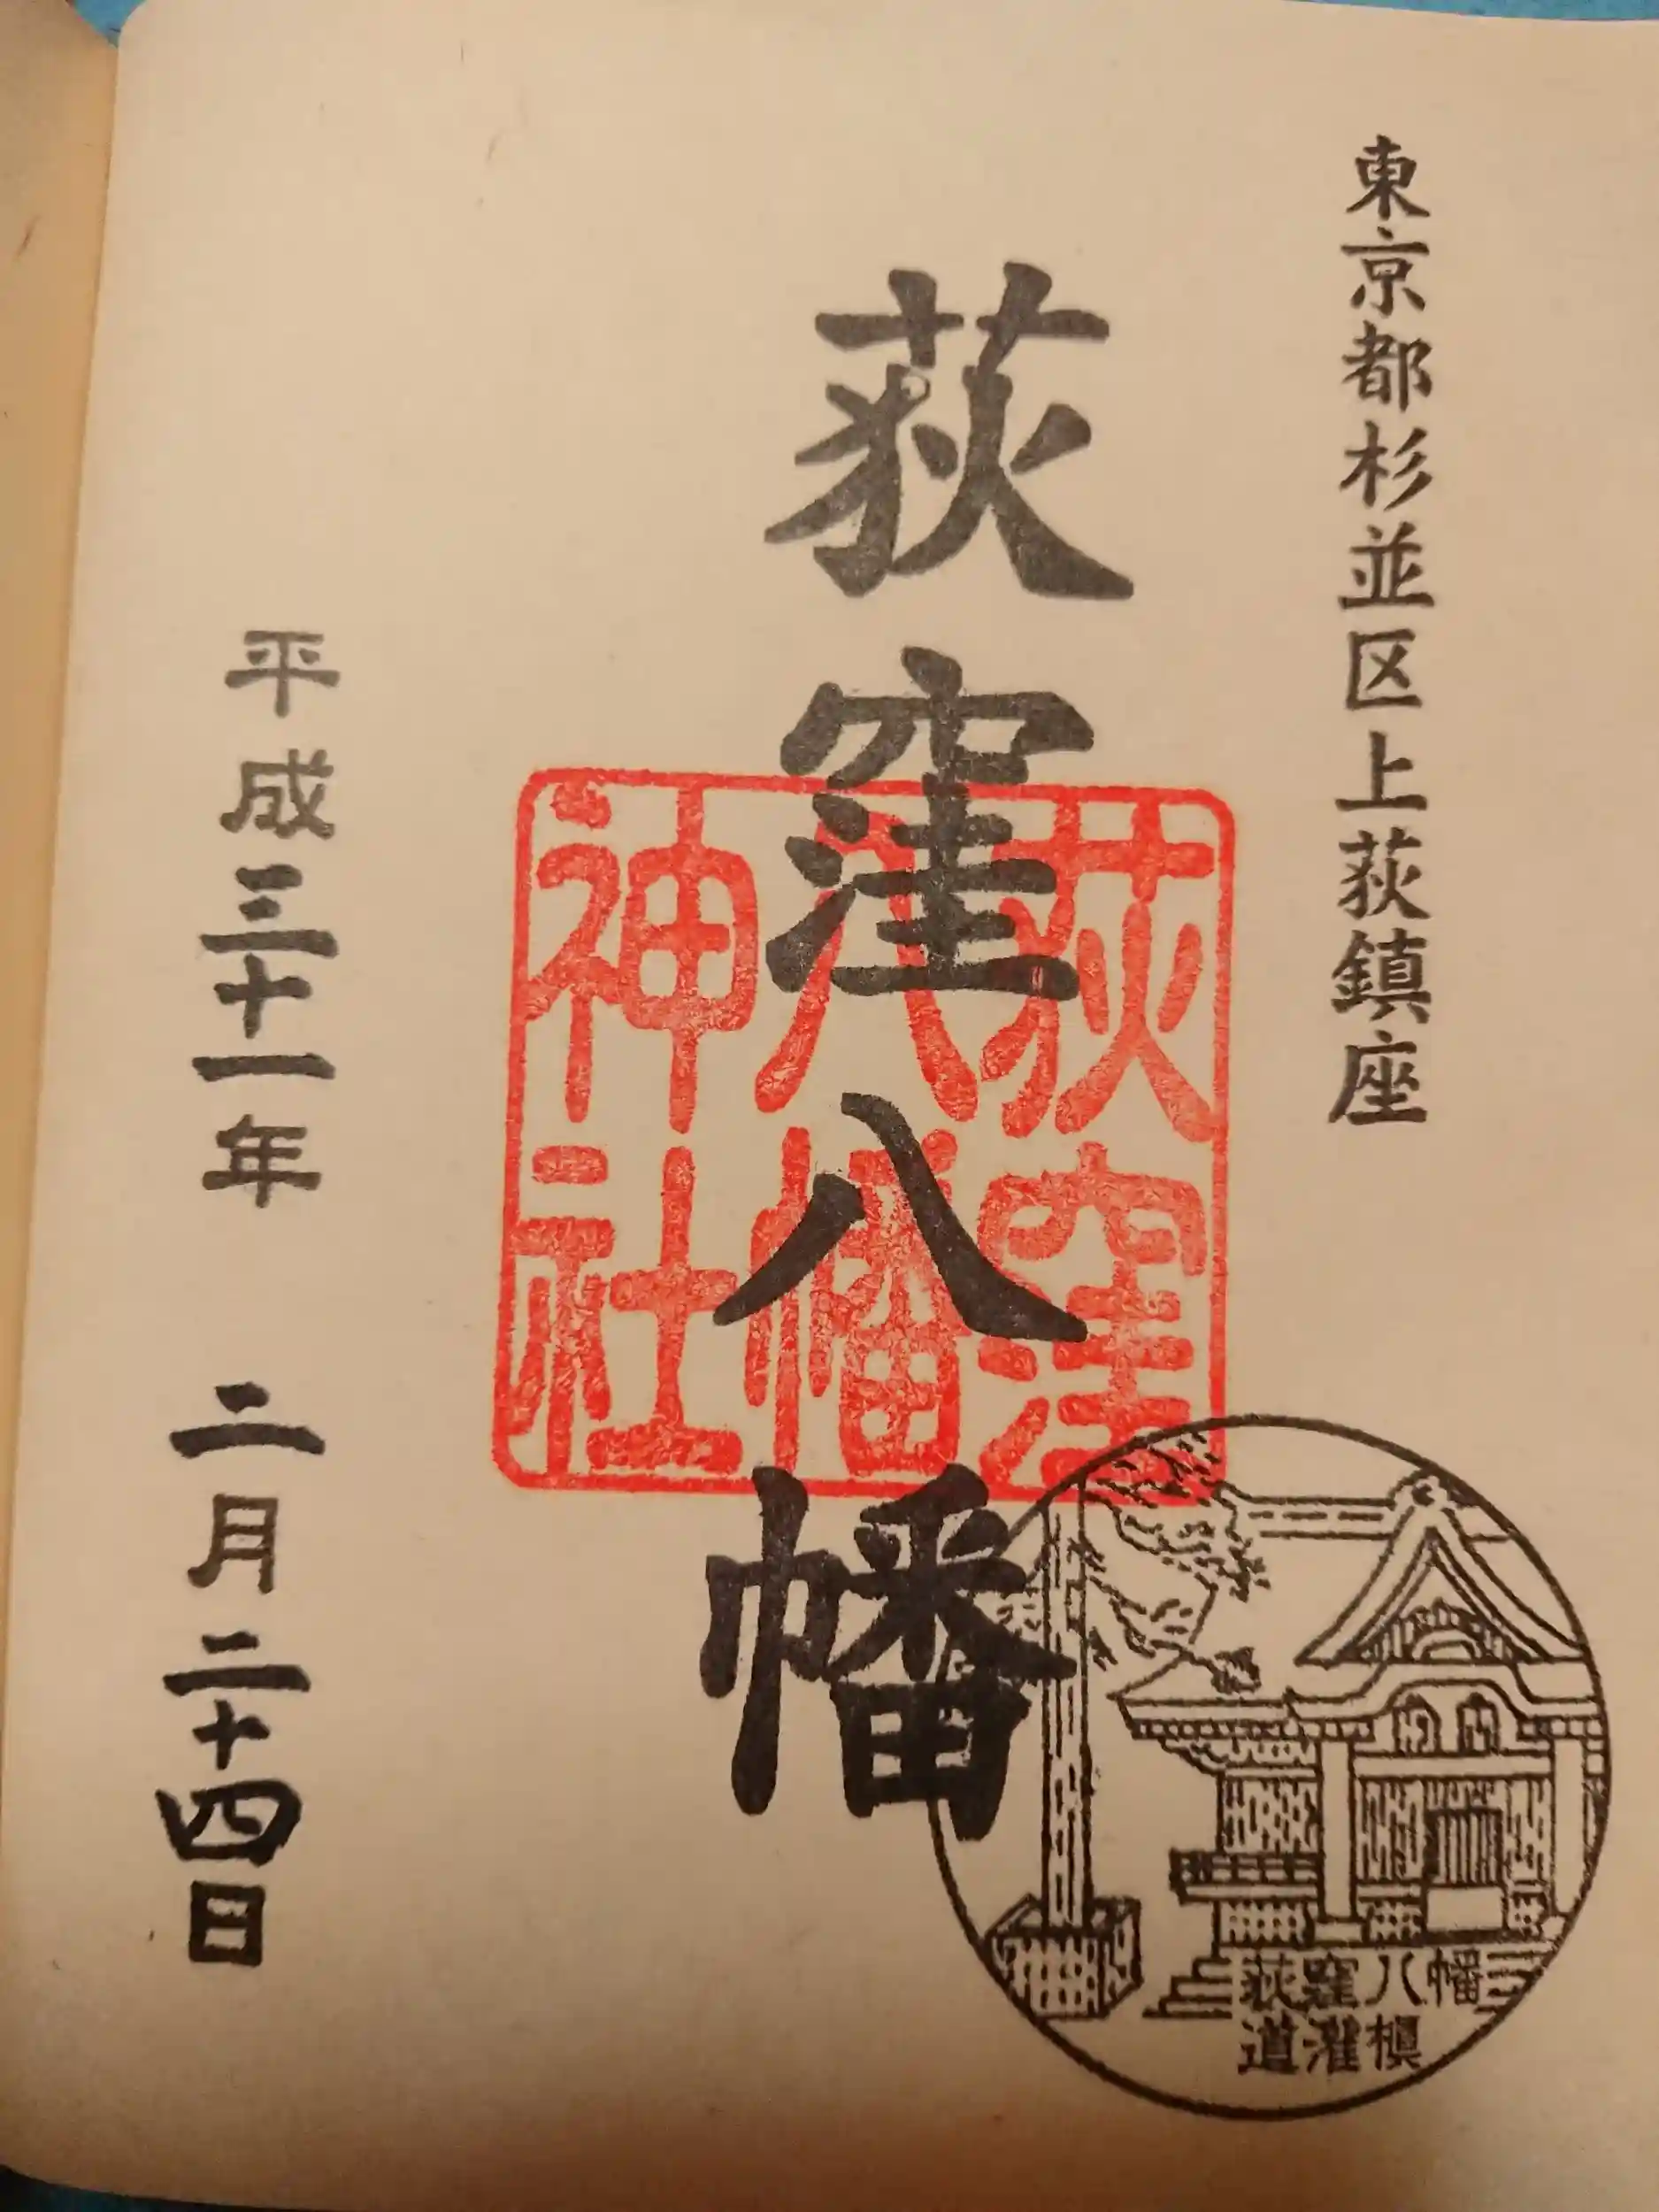 東京都杉並区上荻鎮座
荻窪八幡
荻窪
八幡
神社
荻窪八幡
道灌槇
平成三十一年 二月二十四日